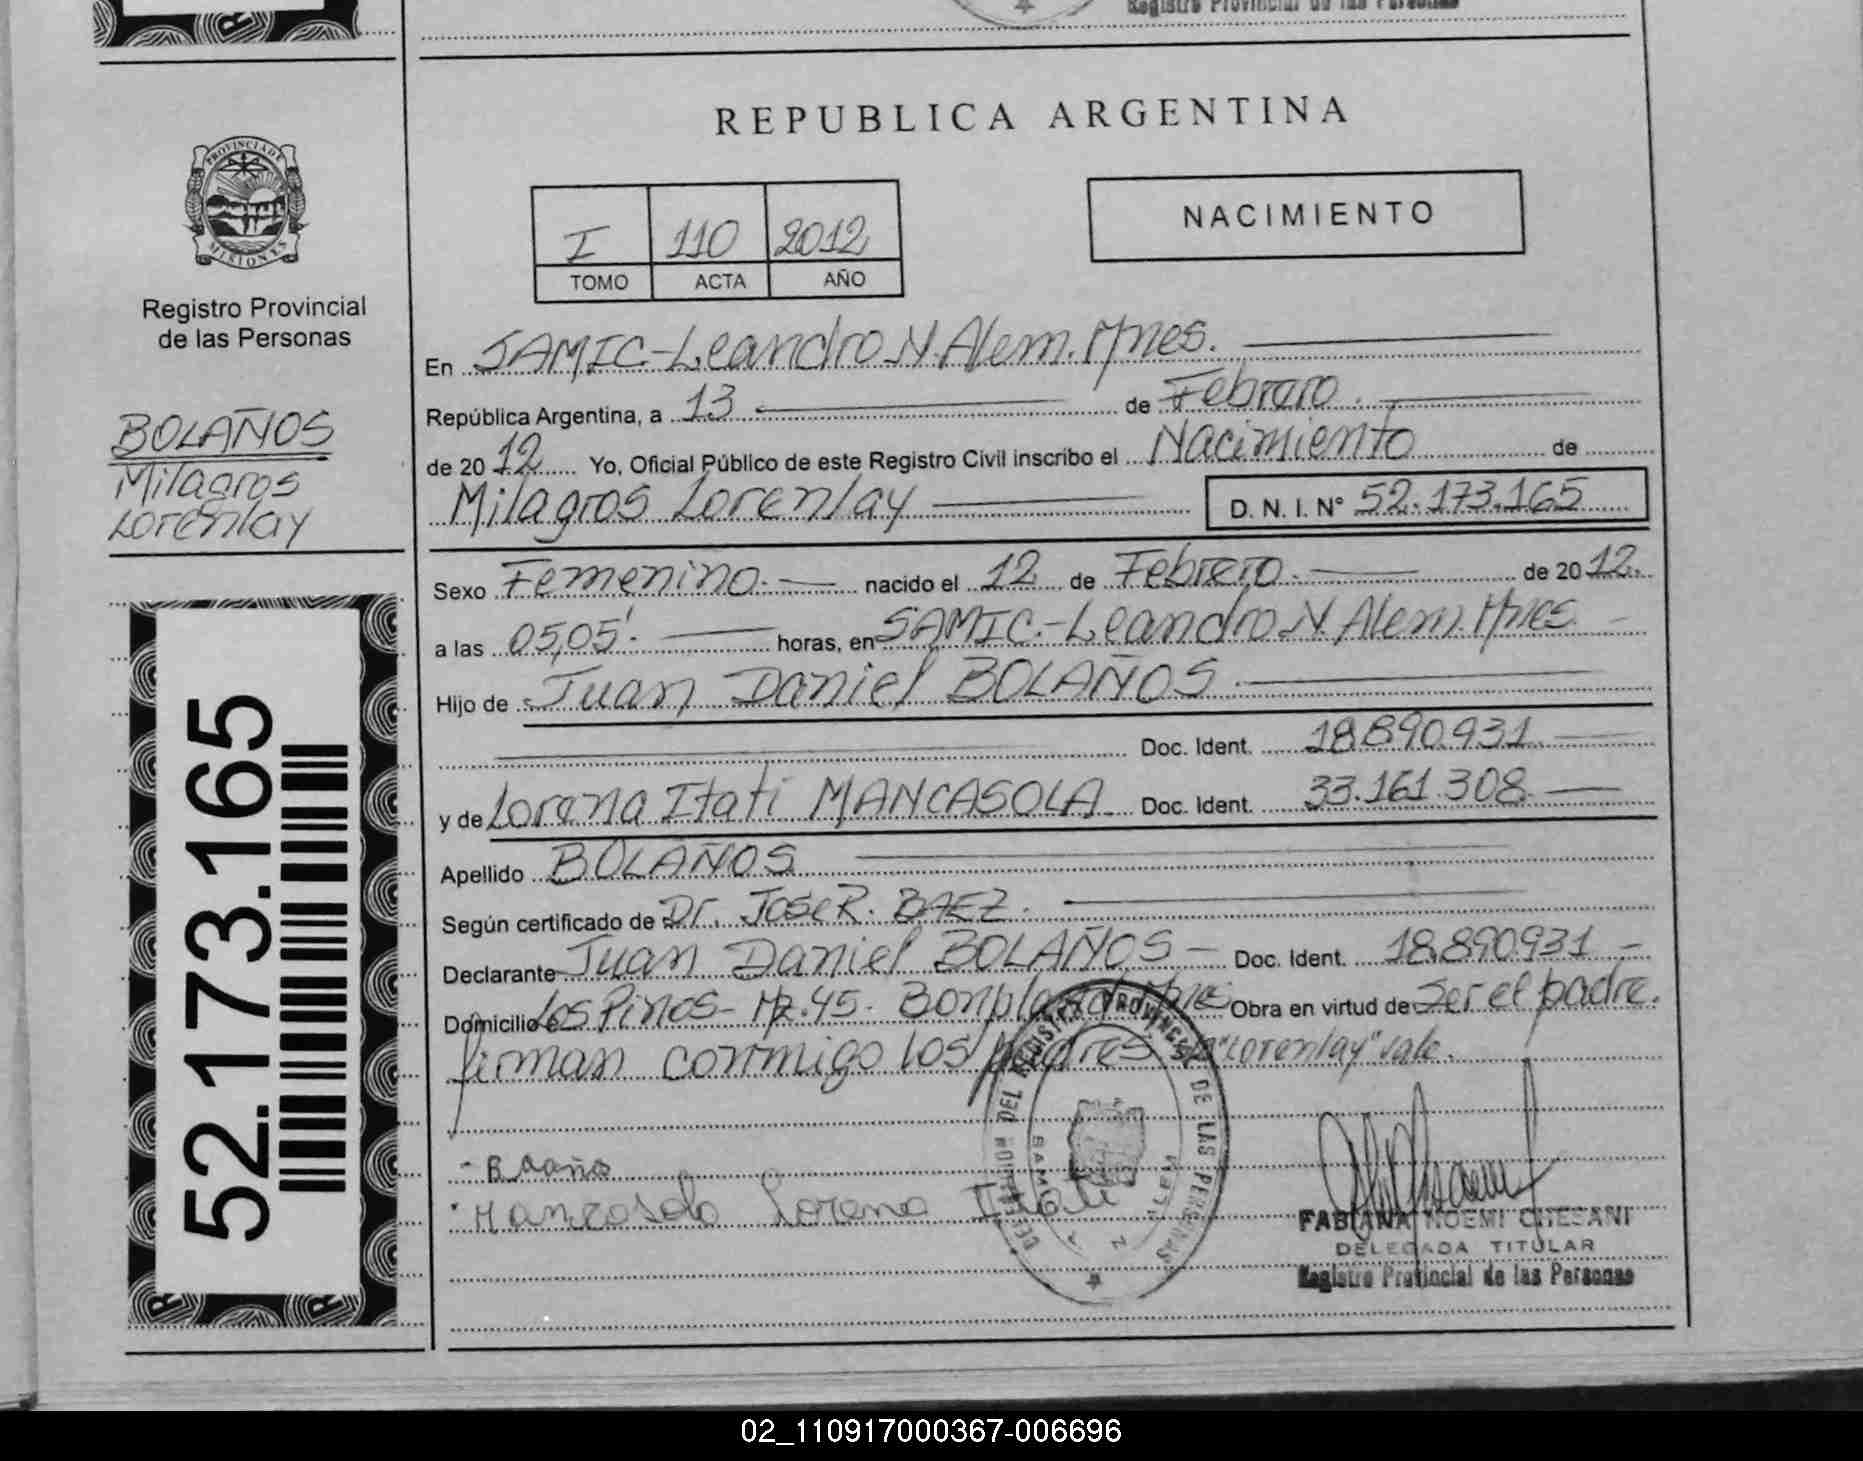 Registro Provincial de las Personas
PROVINCIA DE
MISIONES
Registro Provincial
de las Personas
BOLAÑOS
Milagros
Lorenlay
52.173.165
REPUBLICA ARGENTINA
I 110 2012
TOMO ACTA AÑO
NACIMIENTO
En SAMIC-Leandro N. Alem. Mnes.
República Argentina, a 13 de Febrero.
de 2012 Yo, Oficial Público de este Registro Civil inscribo el Nacimiento de
Milagros Lorenlay D. N. I. N° 52.173.165
Sexo Femenino. nacido el 12 de Febrero. de 2012.
a las 05,05'. horas, en SAMIC.-Leandro N. Alem. Mnes.
Hijo de Juan Daniel BOLAÑOS
Doc. Ident. 18.890.931
y de Lorena Itati MANCASOLA Doc. Ident. 33.161.308
Apellido BOLAÑOS
Según certificado de Dr. Jose R. BAEZ.
Declarante Juan Daniel BOLAÑOS Doc. Ident. 18.890.931
Domicilio Los Pinos- Mz.45- Bonpland Obra en virtud de Ser el padre.
firman conmigo los padres "Lorenlay" vale.
DEL REGISTRO PROVINCIAL DE LAS PERSONAS
SAMIC
L N ALEM
Mancosola Lorena Itati
FABIANA NOEMI CHESANI
DELEGADA TITULAR
Registro Provincial de las Personas
02_110917000367-006696